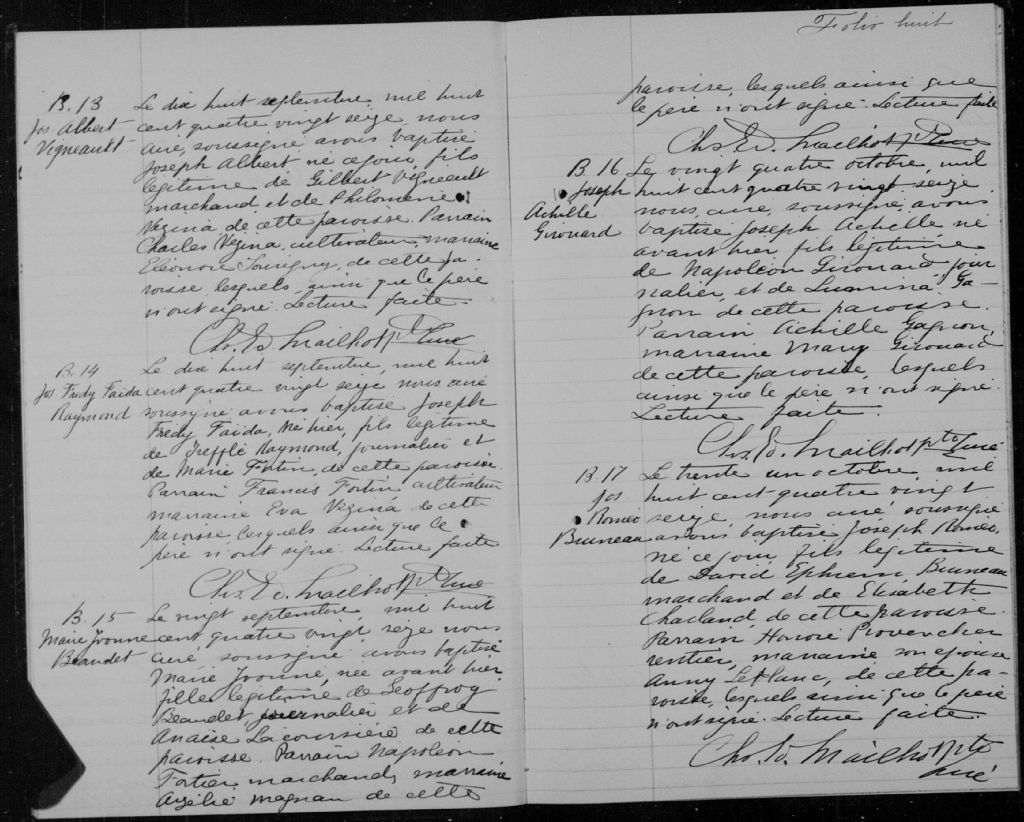 B. 13
Jos. Albert
Vigneault
Le dix huit septembre, mil huit
cent quatre vingt seize, nous
curé, soussigné, avons baptisé
Joseph Albert né ce jour, fils
légitime de Gilbert Vigneault
marchand, et de Philomène
Vézina, de cette paroisse. Parrain
Charles Vézina, cultivateur, marraine
Eléonore Souvigny, de cette pa-
roisse lesquels, ainsi que le père
n'ont signé. Lecture faite.
Chs. Ed. Mailhot Ptre Curé
B. 14
Jos Fredy Faida
Raymond
Le dix huit septembre, mil huit
cent quatre vingt seize nous curé
soussigné avons baptisé Joseph
Fredy Faida, né hier, fils légitime
de Trefflé Raymond, journalier et
de Marie Fortin, de cette paroisse.
Parrain Francis Fortin, cultivateur
marraine Eva Vézina de cette
paroisse, lesquels ainsi que le
père n'ont signé. Lecture faite
Chs. Ed. Mailhot Ptre Curé
B. 15
Marie Yvonne
Beaudet
Le vingt septembre, mil huit
cent, quatre vingt, seize nous
curé, soussigné avons baptisé
Marie Yvonne, née avant hier,
fille légitime de Geoffroy
Beaudet, journalier et de
Anaïse Lacoursière de cette
paroisse. Parrain Napoléon
Fortier, marchand, marraine
Azélie Magnan de cette
Folio huit
paroisse, lesquels ainsi que
le père n'ont signé. Lecture faite
Chs. Ed. Mailhot Ptre Curé
B. 16
Joseph
Achille
Girouard
Le vingt quatre octobre, mil
huit cent quatre vingt seize
nous, curé, soussigné, avons
baptisé Joseph Achille né
avant hier fils légitime
de Napoléon Girouard, jour
nalier, et de Lumina Ga-
gnon de cette paroisse.
Parrain Achille Gagnon,
marraine Mary Girouard
de cette paroisse, lesquels
ainsi que le père n'ont signé.
Lecture faite.
Chs. Ed. Mailhot Ptre Curé
B. 17
Jos
Roméo
Bruneau
Le trente un octobre, mil
huit cent quatre vingt
seize, nous curé, soussigné
avons baptisé Joseph Roméo,
né ce jour, fils légitime
de David Ephrem, Bruneau
marchand et de Elisabeth
Charland de cette paroisse.
Parrain Honoré Provencher
rentier, marraine son épouse
Anny Leblanc, de cette pa-
roisse, lesquels ainsi que le père
n'ont signé. Lecture faite.
Chs. Ed. Mailhot Ptre
curé